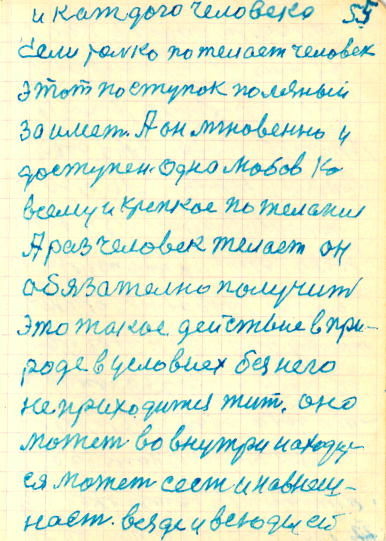 и каждого человека 55
Если толко пожелает человек
этот поступок полезный
заимет. А он мгновенно и
доступен. Одна любов ко
всему и крепкое пожелания
А раз человек желает он
обязателно получит
это такое действие в при-
роде в условиех без него
не приходится жит. оно
может во внутри находи
ся может сест и на внеш-
ност. везде и всюди ей